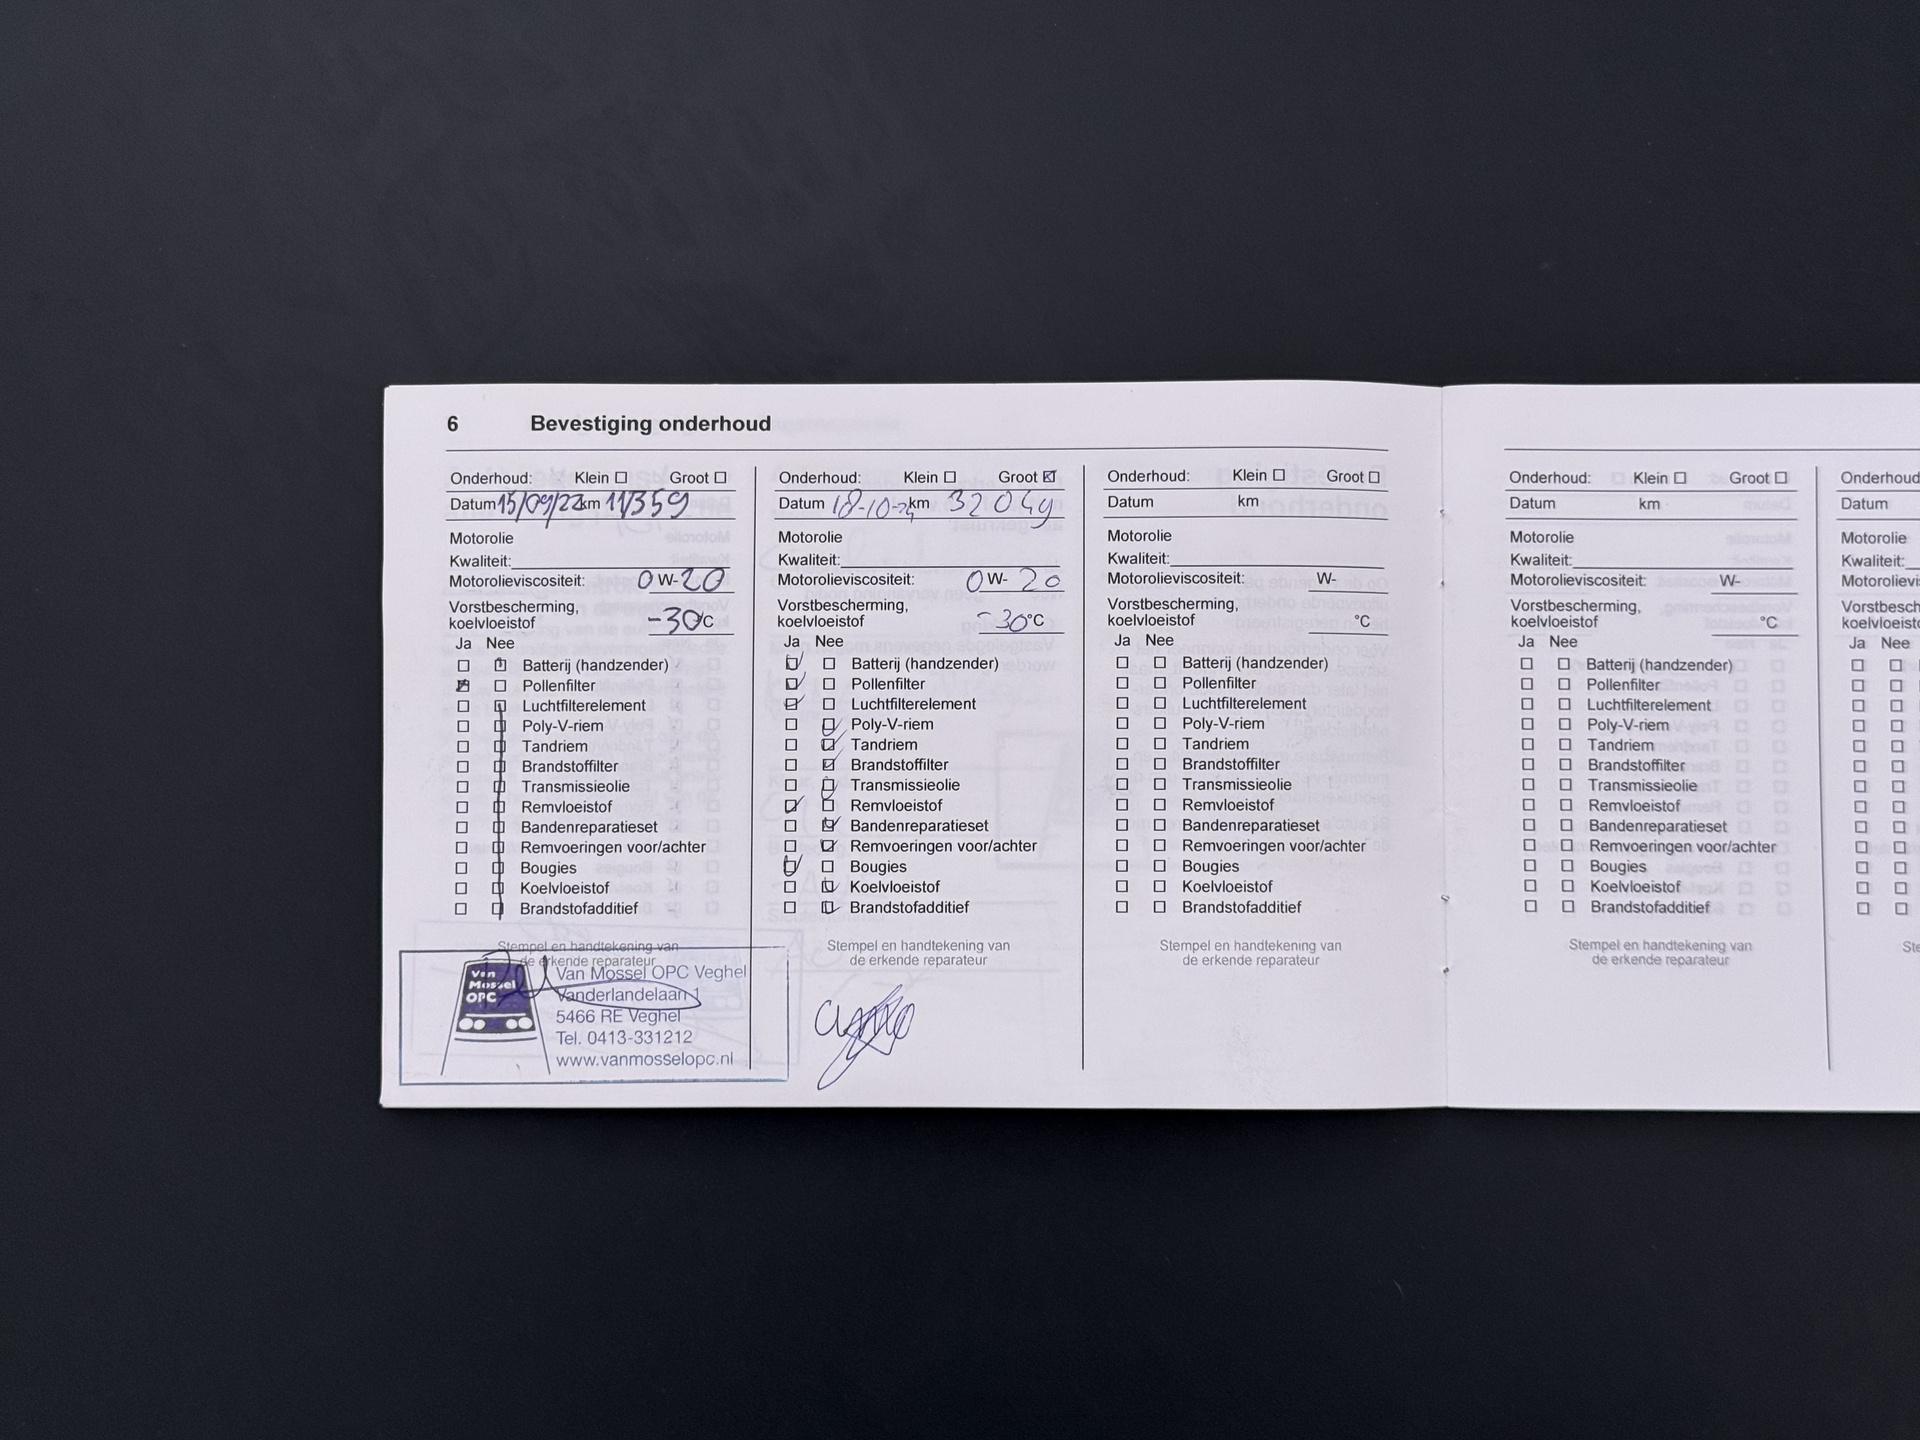 6 Bevestiging onderhoud
Onderhoud: Klein ☐ Groot ☐
Datum 15/09/22 km 11359
Motorolie
Kwaliteit:
Motorolieviscositeit: 0 W- 20
Vorstbescherming,
koelvloeistof -30 °C
Ja Nee
Batterij (handzender)
Pollenfilter
Luchtfilterelement
Poly-V-riem
Tandriem
Brandstoffilter
Transmissieolie
Remvloeistof
Bandenreparatieset
Remvoeringen voor/achter
Bougies
Koelvloeistof
Brandstofadditief
Stempel en handtekening van
de erkende reparateur
Van
Mossel
OPC
Van Mossel OPC Veghel
Vanderlandelaan 1
5466 RE Veghel
Tel. 0413-331212
www.vanmosselopc.nl
Onderhoud: Klein ☐ Groot ☑
Datum 18-10-24 km 32049
Motorolie
Kwaliteit:
Motorolieviscositeit: 0 W- 20
Vorstbescherming,
koelvloeistof -30 °C
Ja Nee
Batterij (handzender)
Pollenfilter
Luchtfilterelement
Poly-V-riem
Tandriem
Brandstoffilter
Transmissieolie
Remvloeistof
Bandenreparatieset
Remvoeringen voor/achter
Bougies
Koelvloeistof
Brandstofadditief
Stempel en handtekening van
de erkende reparateur
Onderhoud: Klein ☐ Groot ☐
Datum km
Motorolie
Kwaliteit:
Motorolieviscositeit: W-
Vorstbescherming,
koelvloeistof °C
Ja Nee
Batterij (handzender)
Pollenfilter
Luchtfilterelement
Poly-V-riem
Tandriem
Brandstoffilter
Transmissieolie
Remvloeistof
Bandenreparatieset
Remvoeringen voor/achter
Bougies
Koelvloeistof
Brandstofadditief
Stempel en handtekening van
de erkende reparateur
Onderhoud: Klein ☐ Groot ☐
Datum km
Motorolie
Kwaliteit:
Motorolieviscositeit: W-
Vorstbescherming,
koelvloeistof °C
Ja Nee
Batterij (handzender)
Pollenfilter
Luchtfilterelement
Poly-V-riem
Tandriem
Brandstoffilter
Transmissieolie
Remvloeistof
Bandenreparatieset
Remvoeringen voor/achter
Bougies
Koelvloeistof
Brandstofadditief
Stempel en handtekening van
de erkende reparateur
Onderhoud
Datum
Motorolie
Kwaliteit:
Motorolievi
Vorstbesch
koelvloeist
Ja Nee
Ste